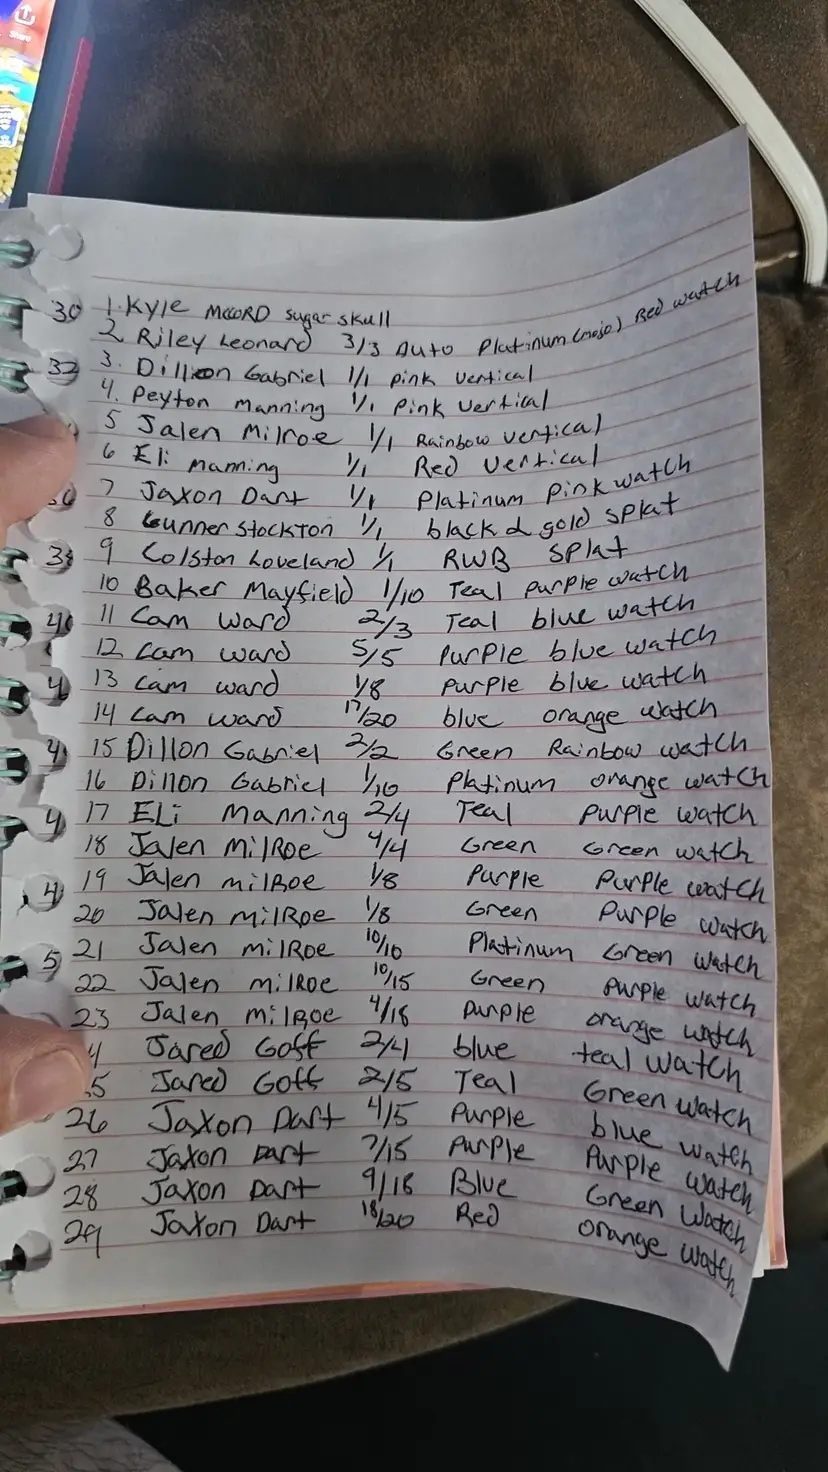 Share
30 1. Kyle McCORD sugar skull
2. Riley Leonard 3/3 Auto Platinum (mojo) Red watch
32 3. Dillion Gabriel 1/1 pink vertical
4. Peyton Manning 1/1 Pink vertical
5 Jalen Milroe 1/1 Rainbow vertical
6 Eli manning 1/1 Red vertical
7 Jaxon Dart 1/1 Platinum pink watch
8 Gunner Stockton 1/1 black & gold splat
9 Colston Loveland 1/1 RWB splat
10 Baker Mayfield 1/10 Teal purple watch
11 Cam ward 2/3 Teal blue watch
12 Cam ward 5/5 Purple blue watch
13 Cam ward 1/8 purple blue watch
14 Cam ward 17/20 blue orange watch
15 Dillon Gabriel 2/2 Green Rainbow watch
16 Dillon Gabriel 1/10 Platinum orange watch
17 ELi Manning 2/4 Teal Purple watch
18 Jalen MilRoe 4/4 Green Green watch
19 Jalen milRoe 1/8 Purple Purple watch
20 Jalen milRoe 1/8 Green Purple watch
21 Jalen milRoe 10/10 Platinum Green watch
22 Jalen milRoe 10/15 Green Purple watch
23 Jalen milRoe 4/18 purple orange watch
4 Jared Goff 2/4 blue teal watch
5 Jared Goff 2/5 Teal Green watch
26 Jaxon Dart 4/5 Purple blue watch
27 Jaxon Dart 7/15 Purple Purple watch
28 Jaxon Dart 9/18 Blue Green watch
29 Jaxon Dart 18/20 Red orange watch